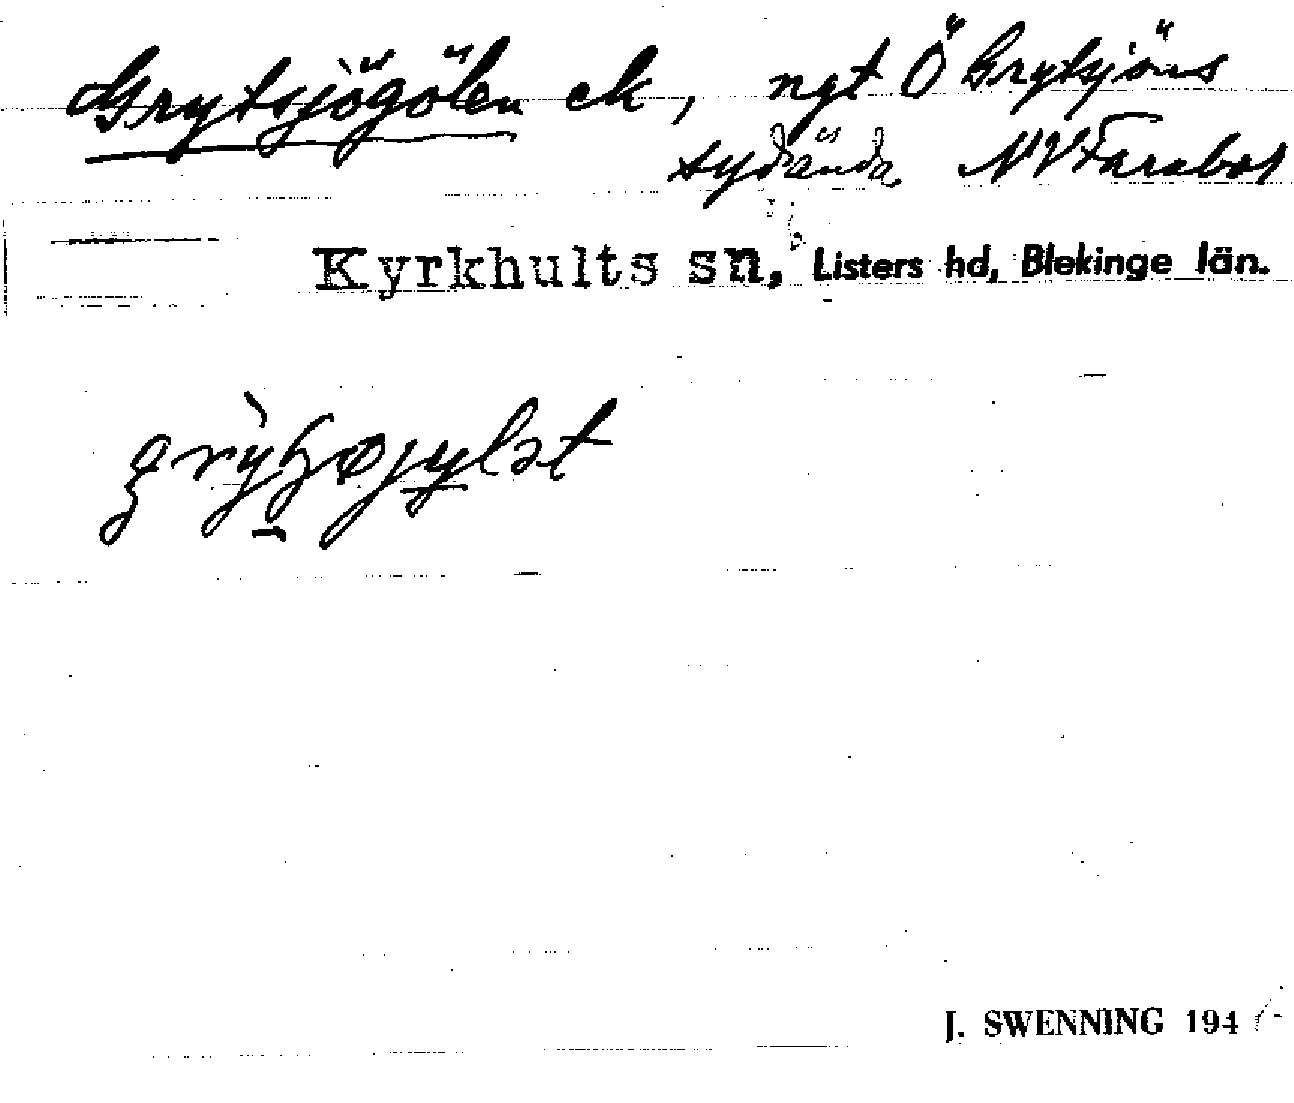 Grytsjögölen ek, ngt Ö Grytsjöns
sydända NV Farabol
Kyrkhults sn, Listers hd, Blekinge län.
J. SWENNING 194